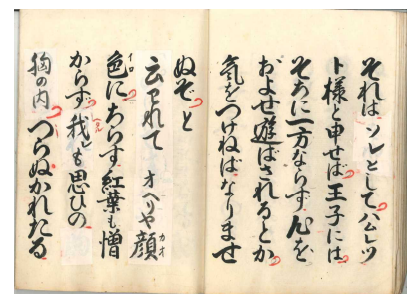 それはソレとしてハムレツ
ト様と申せば王子には
そちに一方ならず心を
およせ遊ばされるとか
気をつけねばなりませ
ぬぞと
云われて オヘリや顔
色にちらす紅葉も憎
からず我も思ひの
胸の内つらぬかれたる